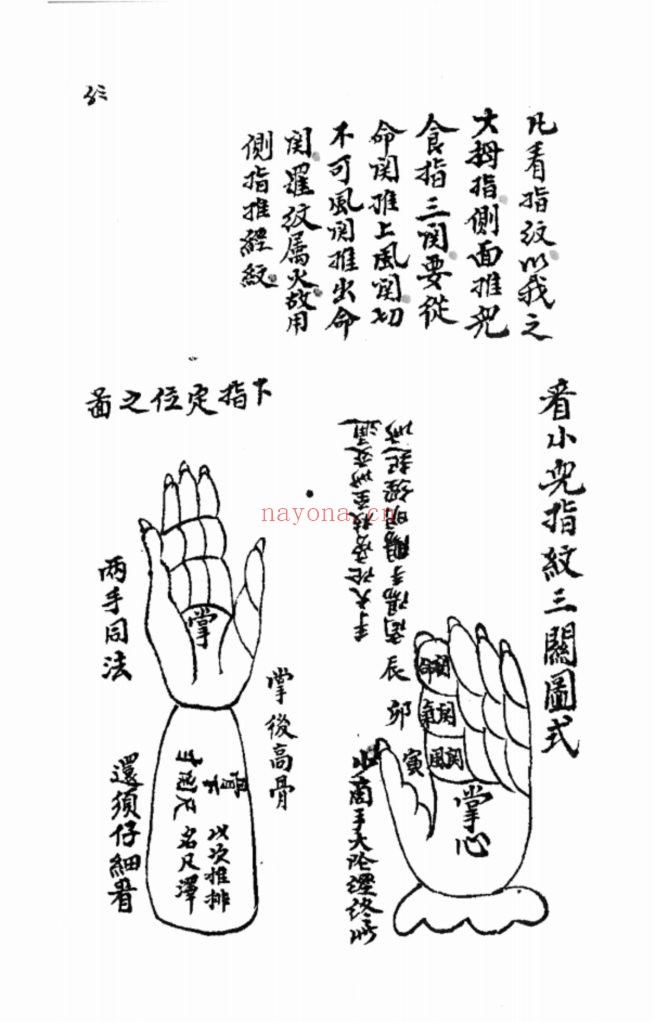 凡看指紋以我之
大拇指側面推兒
食指三関要從
命関推上風関切
不可風関推出命
関羅紋属火故用
側指推經紋
看小兒指紋三關圖式
商陽手陽明經起
手太陰
辰
卯
寅
命関
氣関
風関
掌心
少商手太陰經終
下指定位之啚
掌
兩手同法
掌後高骨
以次推排
名尺澤
還須仔細看
nayona.cn